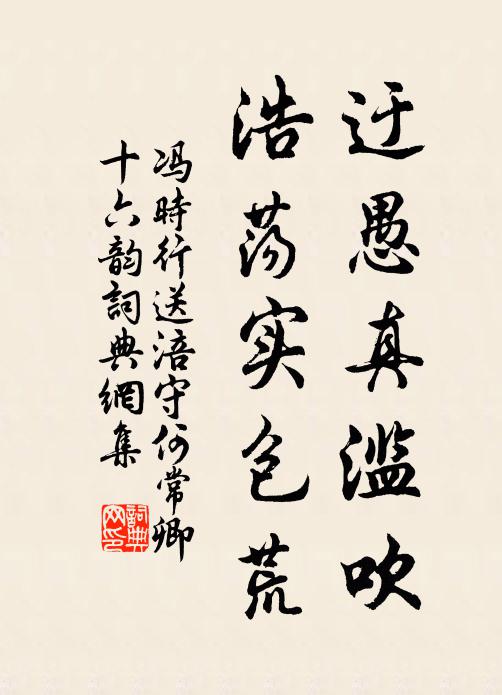 迂愚真滥吹
浩荡实包荒
冯時行送涪守何常卿
十六韵詞典網集
詞典
网印